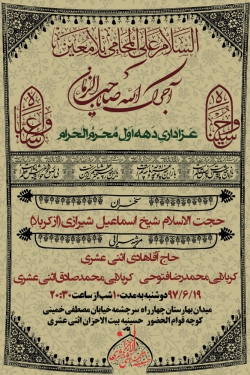 السلام علی المحامی بلا معین
آجرک الله یا صاحب الزمان
عزاداری دهه اول محرم الحرام
سخنران
حجت الاسلام شیخ اسماعیل شیرازی (از کربلا)
مرثیه سرائی
حاج آقا هادی اثنی عشری
کربلایی محمدرضا فتوحی
کربلایی محمد صادق اثنی عشری
۹۷/۶/۱۹ دوشنبه به مدت ۱۰ شب از ساعت ۲۰:۳۰
میدان بهارستان چهارراه سرچشمه خیابان مصطفی خمینی
کوچه قوام الحضور حسینیه بیت الاحزان اثنی عشری